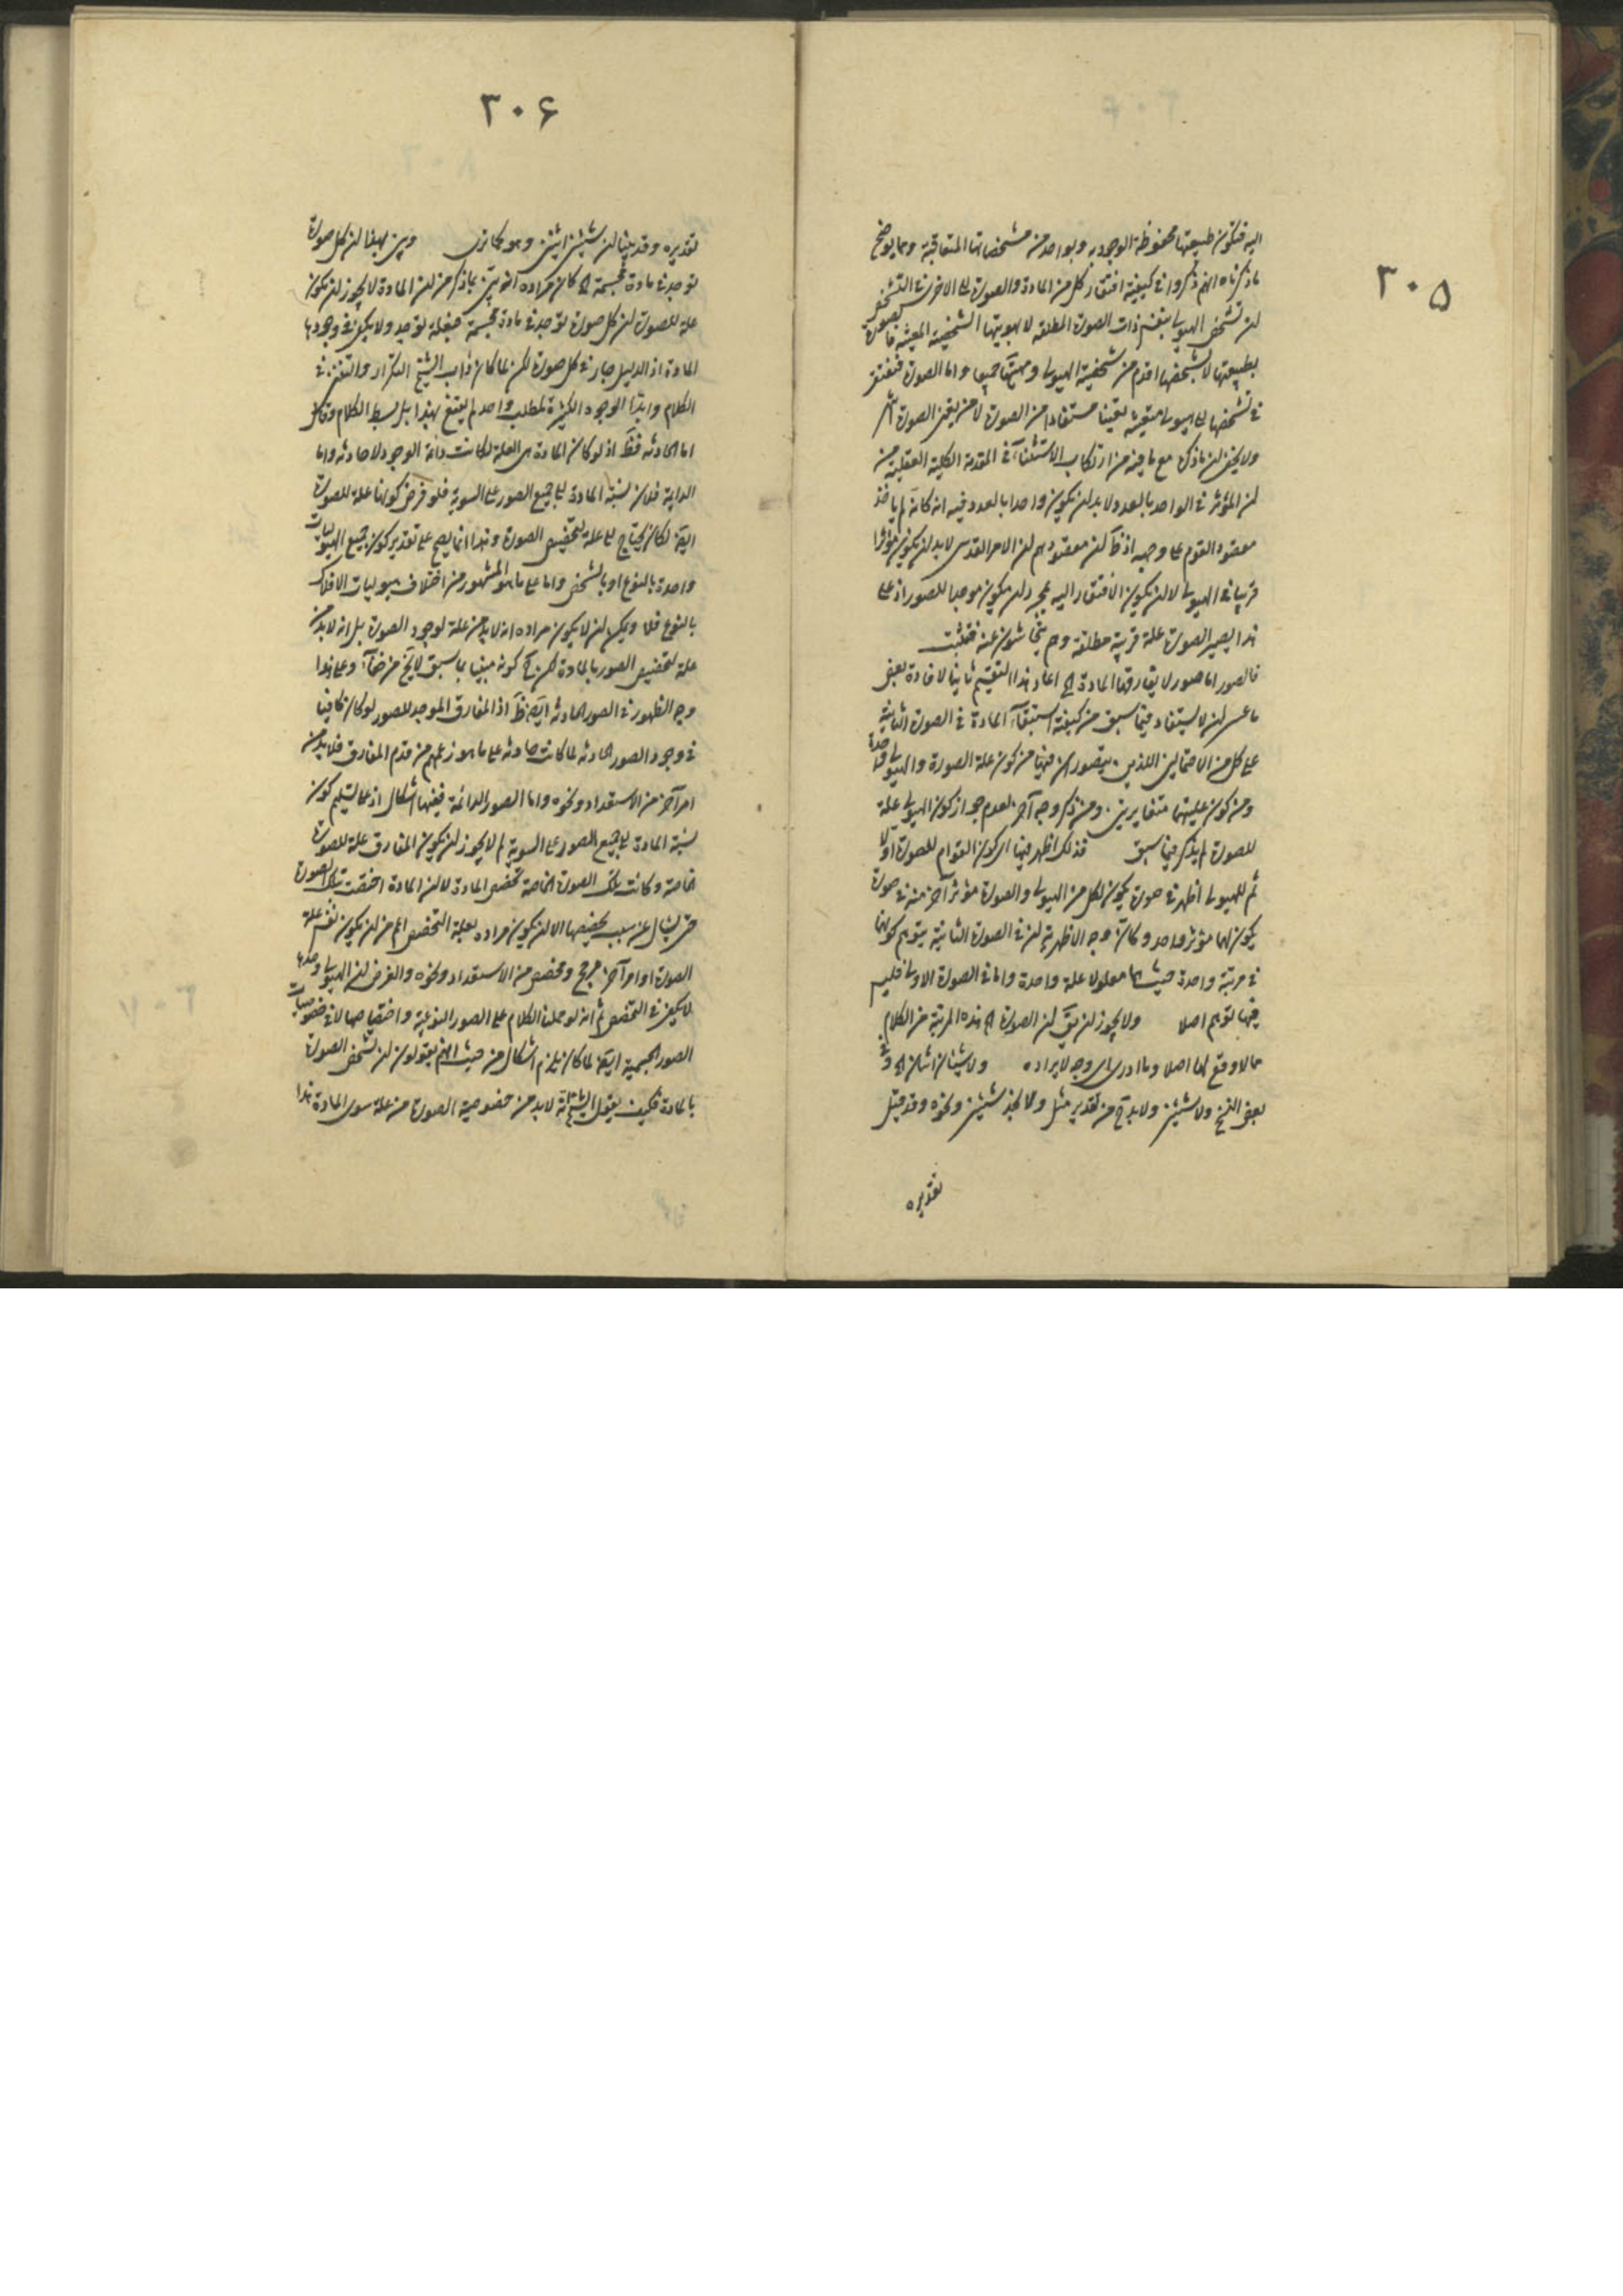 ٣٠۵
اليه فتكون طبيعتها محفوظة الوجود به وبواحد من مشخصاتها المتعاقبة ومما يوضح
ما ذكرناه انهم ذكروا في كيفية افتقار كل من المادة والصورة الى الاخرى في التشخص
ان تشخص الهيولى بنفس ذات الصورة المطلقة لا بهويتها الشخصية المعينة فالصورة
بطبيعتها لا بشخصها اقدم من شخصية الهيولى و واما الصورة فتفتقر
في تشخصها الى هيولى متعينة تعينا مستفادا من الصورة لا من تعين الصورة
ولا يخفى ان ما ذكره مع ما فيه من ارتكاب الاستثناء في المقدمة الكلية العقلية من
ان المؤثر في الواحد بالعدد لا بد ان يكون واحدا بالعدد فيه انه كانه لم ياخذ
مقصود القوم على وجهه اذ ظ ان مقصودهم ان الامر القدسي لا بد ان يكون مؤثرا
قريبا في الهيولى لا ان يكون الافتقار اليه بمجرد ان يكون موجبا للصور اذ على
هذا يصير الصورة علة قريبة مطلقة وهم يتحاشون عنه فتثبت
فالصور اما صور لا تفارقها المادة الخ اعاد هذا التقسيم ثانيا لافادة بعض
ما عسى ان لا يستفاد فيما سبق من كيفية استبقاء المادة في الصورة الثانية
على كل من الاحتمالين اللذين يتصوران فيها من كون علة الصورة والهيولى واحدة
ومن كون علتيهما متغايرتين ومن ذكر وجه آخر لعدم جواز كون الهيولى علة
للصورة لم يذكر فيما سبق فذلك اظهر فيها اى كون القوام للصورة اولا
ثم للهيولى اظهر في صورة يكون لكل من الهيولى والصورة مؤثر آخر منه في صورة
يكون لهما مؤثر واحد وكان وجه الاظهرية ان في الصورة الثانية يتوهم كونهما
في مرتبة واحدة حيث هما معلولا علة واحدة واما في الصورة الاولى فليس
فيها توهم اصلا ولا يجوز ان يق ان الصورة الخ هذه المرتبة من الكلام
مما لا وقع لها اصلا وما ادرى اى وجه لايراده ولا شيئان اثنان الخ وفي
بعض النسخ ولا شيئين ولا بد ح من تقدير مثل ولا نجد شيئين ونحوه وقد قيل
تقديره
٣٠۶
تقديره وقد بينا ان شيئين اثنين وهو كما ترى وبين بهذا ان كل صورة
توجد في مادة مجسمة الخ كان مراده انه تبين بما ذكر من ان المادة لا يجوز ان يكون
علة للصورة ان كل صورة توجد في مادة مجسمة فبعلة توجد ولا يكفى في وجودها
المادة اذ الدليل جار في كل صورة لكن لما كان داب الشيخ التكرار والتفنن في
الكلام وابداء الوجوه الكثيرة لمطلب واحد لم يقنع بهذا بل بسط الكلام وقال
اما الحادثة فظ اذ لو كان المادة هي العلة لكانت دائمة الوجود لا حادثة واما
الدائمة فلان نسبة المادة الى جميع الصور على السوية فلو فرض كونها علة للصورة
ايضا لكان يحتاج الى علة لتخصيص الصورة وهذا انما يصح على تقدير كون جميع الهيوليات
واحدة بالنوع او بالشخص واما على ما هو المشهور من اختلاف هيوليات الافلاك
بالنوع فلا ويمكن ان لا يكون مراده انه لا بد من علة لوجود الصورة بل انه لا بد من
علة لتخصيص الصور بالمادة لكن ح كونه مبينا بما سبق لا يخ من خفاء وعلى هذا
وجه الظهور في الصور الحادثة ايضا ظ اذ المفارق الموجد للصور لو كان كافيا
في وجود الصور الحادثة لما كانت حادثة على ما هو زعمهم من قدم المفارق فلا بد من
امر آخر من الاستعداد ونحوه واما الصور الدائمة ففيها اشكال اذ على تسليم كون
نسبة المادة الى جميع الصور على السوية لم لا يجوز ان يكون المفارق علة للصورة
الخاصة وكانت تلك الصورة الخاصة تخصص المادة لا ان المادة اختصت بتلك الصورة
حتى يسأل عن سبب تخصيصها الا ان يكون مراده بعلة التخصص اعم من ان يكون نفس علة
الصورة او امر آخر مرجح ومخصص من الاستعداد ونحوه والغرض ان الهيولى وحدها
لا يكفى في التخصص ثم انه لو حملنا الكلام على الصور النوعية واختصاصها لا في خصوصيات
الصور الجسمية ايضا لما كان يلزم اشكال من حيث انهم يقولون ان تشخص الصورة
بالمادة فكيف يقول الشيخ انه لا بد من خصوصية الصورة من علة سوى المادة هذا